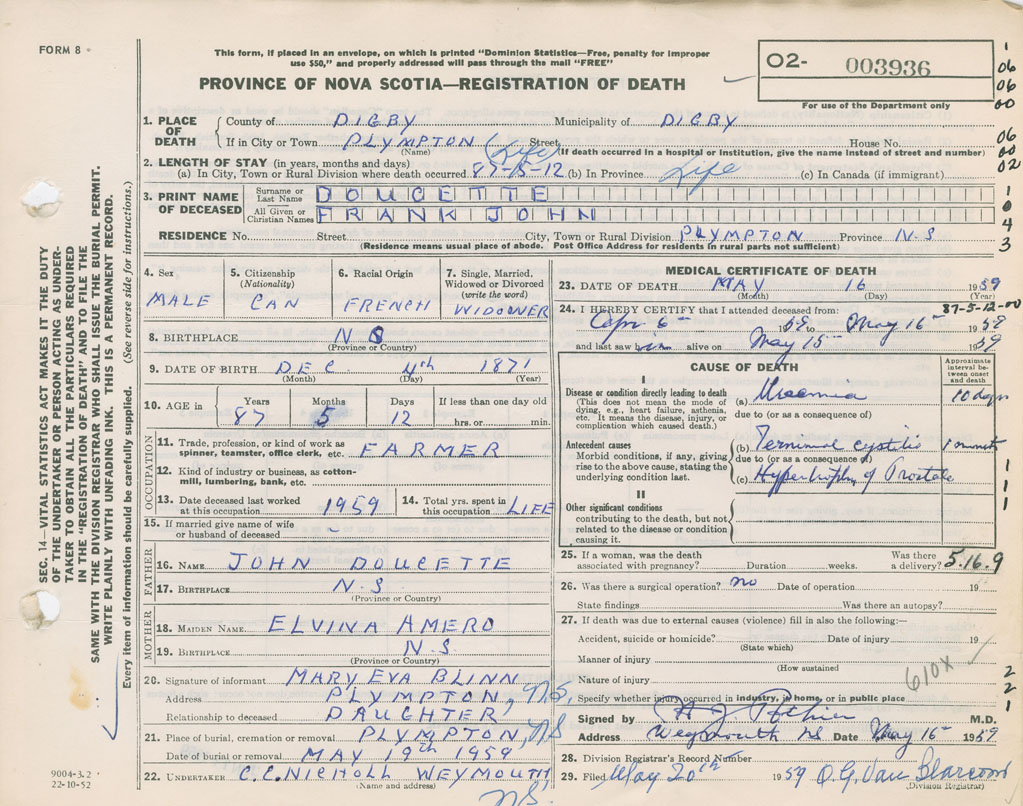 FORM 8
This form, if placed in an envelope, on which is printed "Dominion Statistics—Free, penalty for improper
use $50," and properly addressed will pass through the mail "FREE"
PROVINCE OF NOVA SCOTIA—REGISTRATION OF DEATH
02- 003936
For use of the Department only
1 06 06 00 06 00 02 1 0 4 3
1. PLACE OF DEATH
County of DIGBY Municipality of DIGBY
If in City or Town PLYMPTON (Life) Street House No.
(Name) (If death occurred in a hospital or institution, give the name instead of street and number)
2. LENGTH OF STAY (in years, months and days)
(a) In City, Town or Rural Division where death occurred 87-5-12 (b) In Province Life (c) In Canada (if immigrant)
3. PRINT NAME OF DECEASED
Surname or Last Name DOUCETTE
All Given or Christian Names FRANK JOHN
RESIDENCE No. Street City, Town or Rural Division PLYMPTON Province N-S
(Residence means usual place of abode. Post Office Address for residents in rural parts not sufficient)
4. Sex MALE
5. Citizenship (Nationality) CAN
6. Racial Origin FRENCH
7. Single, Married, Widowed or Divorced (write the word) WIDOWER
8. BIRTHPLACE N S
(Province or Country)
9. DATE OF BIRTH DEC 4th 1871
(Month) (Day) (Year)
10. AGE in Years Months Days If less than one day old
87 5 12 hrs. or min.
OCCUPATION
11. Trade, profession, or kind of work as
spinner, teamster, office clerk, etc. FARMER
12. Kind of industry or business, as cotton-
mill, lumbering, bank, etc.
13. Date deceased last worked
at this occupation 1959
14. Total yrs. spent in
this occupation LIFE
15. If married give name of wife
or husband of deceased
FATHER
16. NAME JOHN DOUCETTE
17. BIRTHPLACE N-S
(Province or Country)
MOTHER
18. MAIDEN NAME ELVINA AMERO
19. BIRTHPLACE N-S
(Province or Country)
20. Signature of informant MARY EVA BLINN
Address PLYMPTON, NS,
Relationship to deceased DAUGHTER
21. Place of burial, cremation or removal PLYMPTON, NS
Date of burial or removal MAY 19th 1959
22. UNDERTAKER C.C. NICHOLL WEYMOUTH,
(Name and address) NS.
MEDICAL CERTIFICATE OF DEATH
23. DATE OF DEATH MAY 16 1959
(Month) (Day) (Year)
24. I HEREBY CERTIFY that I attended deceased from: 87-5-12-00
6th 1959 to May 16th 1959
and last saw h im alive on May 15th 1959
CAUSE OF DEATH
Approximate interval between onset and death
I
Disease or condition directly leading to death
(This does not mean the mode of
dying, e.g., heart failure, asthenia,
etc. It means the disease, injury, or
complication which caused death.)
(a) Uraemia 10 days
due to (or as a consequence of)
Antecedent causes
Morbid conditions, if any, giving
rise to the above cause, stating the
underlying condition last.
(b) Terminal cystitis 1
due to (or as a consequence of)
(c) Hypertrophy of Prostate
II
Other significant conditions
contributing to the death, but not
related to the disease or condition
causing it.
1
1
1
25. If a woman, was the death
associated with pregnancy? Duration weeks. Was there
a delivery? 5.16.9
26. Was there a surgical operation? no Date of operation 19
State findings Was there an autopsy?
27. If death was due to external causes (violence) fill in also the following:—
Accident, suicide or homicide? Date of injury 19
(State which)
Manner of injury
(How sustained)
Nature of injury
610X
Specify whether injury occurred in industry, in home, or in public place
2
2
1
Signed by H J Pothier M.D.
Address Weymouth NS Date May 16th 1959
28. Division Registrar's Record Number
29. Filed May 20th 1959 O.G. Van Blarcom
(Division Registrar)
SEC. 14—VITAL STATISTICS ACT MAKES IT THE DUTY
OF THE UNDERTAKER OR PERSON ACTING AS UNDER-
TAKER TO OBTAIN ALL THE PARTICULARS REQUIRED
IN THE "REGISTRATION OF DEATH" AND TO FILE THE
SAME WITH THE DIVISION REGISTRAR WHO SHALL ISSUE THE BURIAL PERMIT.
WRITE PLAINLY WITH UNFADING INK. THIS IS A PERMANENT RECORD.
Every item of information should be carefully supplied. (See reverse side for instructions.)
9004-3.2
22-10-52